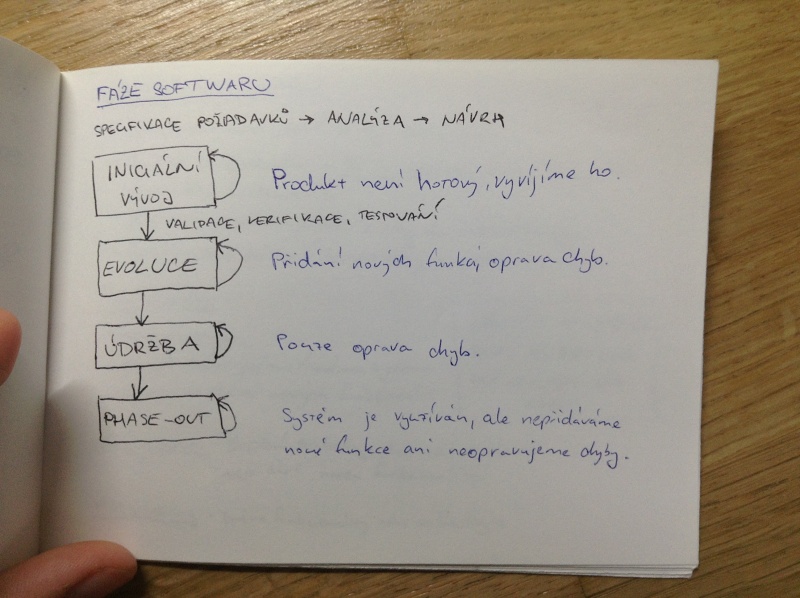 FÁZE SOFTWARU
SPECIFIKACE POŽADAVKŮ → ANALÝZA → NÁVRH
INICIÁLNÍ
VÝVOJ
Produkt není hotový, vyvíjíme ho.
VALIDACE, VERIFIKACE, TESTOVÁNÍ
EVOLUCE
Přidání nových funkcí, oprava chyb.
ÚDRŽBA
Pouze oprava chyb.
PHASE-OUT
Systém je využíván, ale nepřidáváme
nové funkce ani neopravujeme chyby.